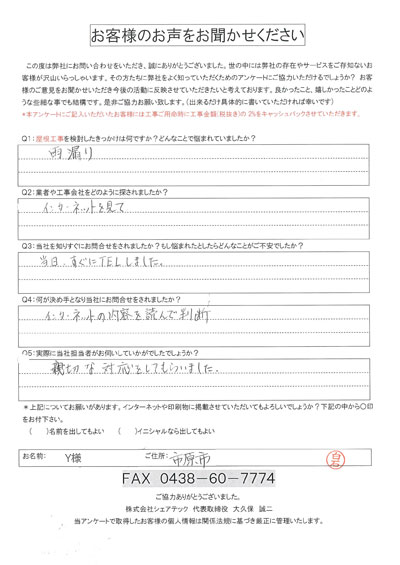 お客様のお声をお聞かせください
この度は弊社にお問い合わせをいただき、誠にありがとうございました。世の中には弊社の存在やサービスをご存知ないお
客様が沢山いらっしゃいます。その方たちに弊社をよく知っていただくためのアンケートにご協力いただけるでしょうか？ お客
様のご意見をお聞かせいただき今後の活動に反映させていただきたいと考えております。良かったこと、嬉しかったことどのよ
うな些細な事でも結構です。是非ご協力お願い致します。（出来るだけ具体的に書いていただければ幸いです）
*本アンケートにご記入いただいたお客様には工事ご用命時に工事金額(税抜き)の2%をキャッシュバックさせていただきます。
Q1：屋根工事を検討したきっかけは何ですか？どんなことで悩まれていましたか？
雨漏り
Q2：業者や工事会社をどのように探されましたか？
インターネットを見て
Q3：当社を知りすぐにお問合せをされましたか？もし悩まれたとしたらどんなことがご不安でしたか？
当日、すぐにTELしました。
Q4：何が決め手となり当社にお問合せをされましたか？
インターネットの内容を読んで判断
Q5：実際に当社担当者がお伺いしていかがでしたでしょうか？
親切な対応をしてもらいました。
＊上記についてお願いがあります。インターネットや印刷物に掲載させていただいてもよろしいでしょうか？下記の中から〇印
をお付下さい。
（　）名前を出してもよい　（　）イニシャルなら出してもよい
お名前: Y様 ご住所: 市原市
FAX 0438-60-7774
ご協力ありがとうございました。
株式会社シェアテック 代表取締役 大久保 誠二
当アンケートで取得したお客様の個人情報は関係法規に基づき厳正に管理いたします。